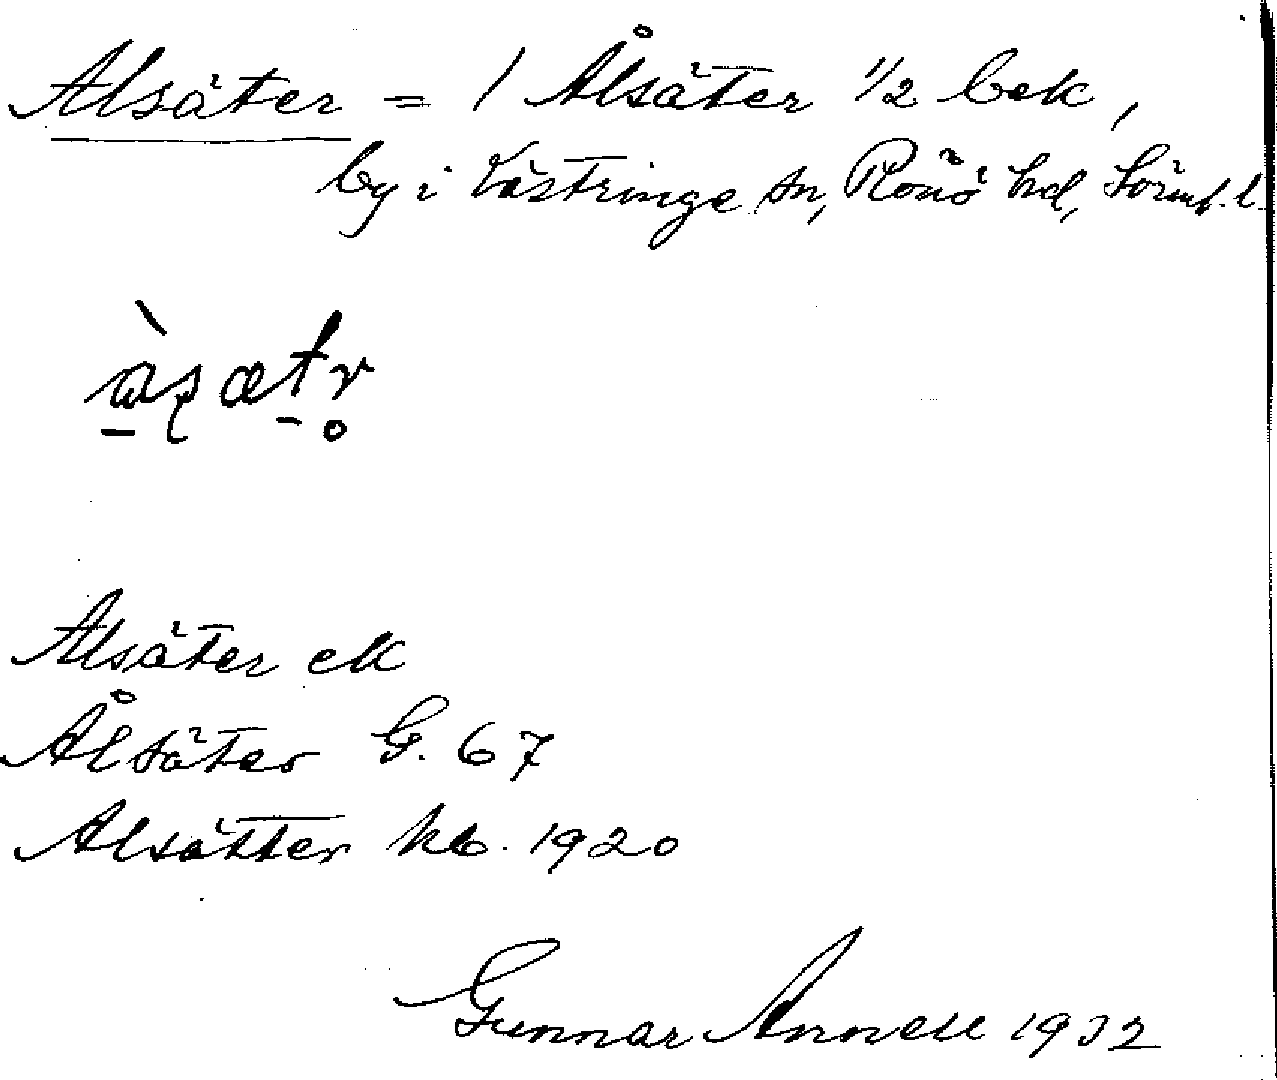 Alsäter = 1 Ålsäter 1/2 bek,
by i Västringe sn, Rönö hd, Sörml. l.
Alsäter ek
Ålsäter G. 67
Alsätter kb. 1920
Gunnar Annell 1932